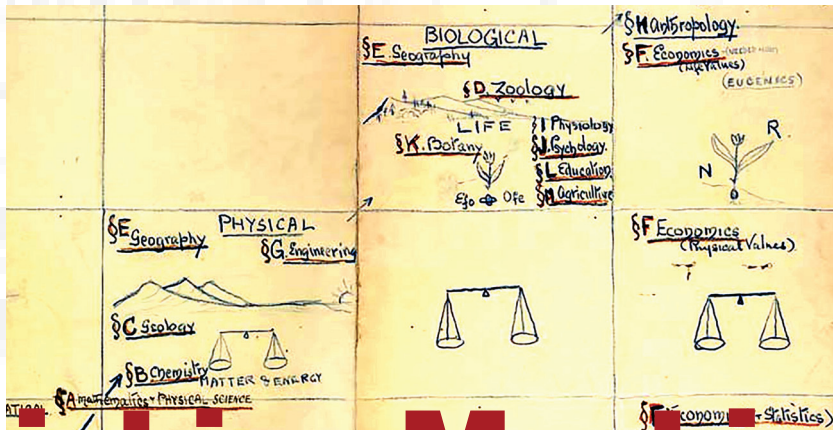 BIOLOGICAL
§E. Geography
§D. Zoology
LIFE
§I Physiology
§K. Botany
§J. Psychology
§L Education
§M Agriculture
Efo Ofe
§H Anthropology
§F. Economics
(Life Values)
(EUGENICS)
N R
PHYSICAL
§E Geography
§G. Engineering
§C Geology
§B Chemistry
MATTER & ENERGY
§A mathematics + PHYSICAL SCIENCE
§F Economics
(Physical Values)
§F Economi + Statistics)